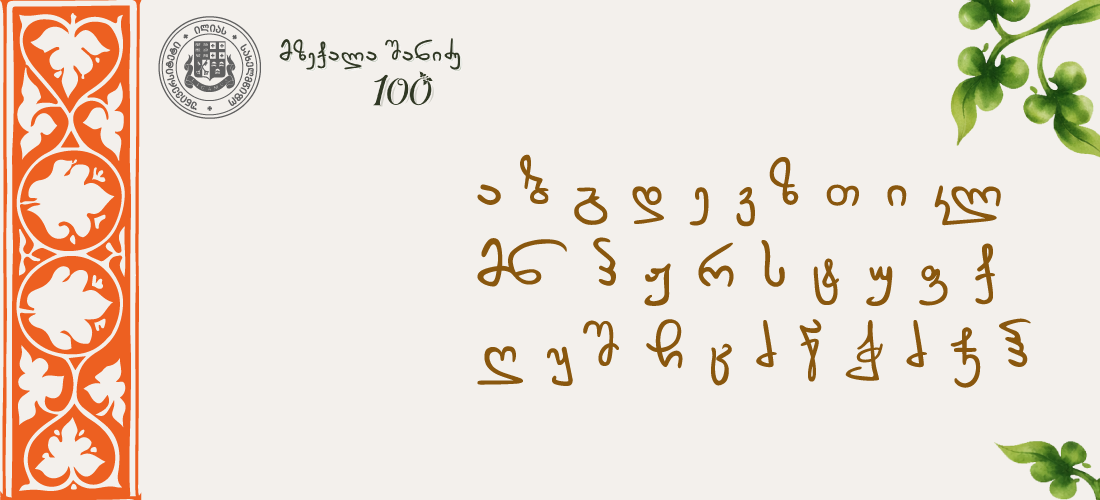 ილიას სახელმწიფო უნივერსიტეტი
მზექალა შანიძე
100
ა ბ გ დ ე ვ ზ თ ი კლ
მნ პ ჟ რ ს ტ უ ფ ქ
ღ ყ შ ჩ ც ძ წ ჭ ხ ჯ ჰ